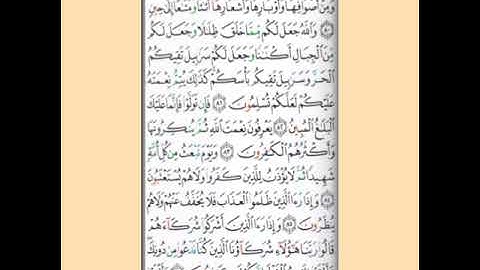 وَمِنْ أَصْوَافِهَا وَأَوْبَارِهَا وَأَشْعَارِهَآ أَثَٰثًا وَمَتَٰعًا إِلَىٰ حِينٍ
٨٠ وَٱللَّهُ جَعَلَ لَكُم مِّمَّا خَلَقَ ظِلَٰلًا وَجَعَلَ لَكُم
مِّنَ ٱلْجِبَالِ أَكْنَٰنًا وَجَعَلَ لَكُمْ سَرَٰبِيلَ تَقِيكُمُ
ٱلْحَرَّ وَسَرَٰبِيلَ تَقِيكُم بَأْسَكُمْ كَذَٰلِكَ يُتِمُّ نِعْمَتَهُۥ
عَلَيْكُمْ لَعَلَّكُمْ تُسْلِمُونَ ٨١ فَإِن تَوَلَّوْا۟ فَإِنَّمَا عَلَيْكَ
ٱلْبَلَٰغُ ٱلْمُبِينُ ٨٢ يَعْرِفُونَ نِعْمَتَ ٱللَّهِ ثُمَّ يُنكِرُونَهَا
وَأَكْثَرُهُمُ ٱلْكَٰفِرُونَ ٨٣ وَيَوْمَ نَبْعَثُ مِن كُلِّ أُمَّةٍ
شَهِيدًا ثُمَّ لَا يُؤْذَنُ لِلَّذِينَ كَفَرُوا۟ وَلَا هُمْ يُسْتَعْتَبُونَ
٨٤ وَإِذَا رَءَا ٱلَّذِينَ ظَلَمُوا۟ ٱلْعَذَابَ فَلَا يُخَفَّفُ عَنْهُمْ وَلَا هُمْ
يُنظَرُونَ ٨٥ وَإِذَا رَءَا ٱلَّذِينَ أَشْرَكُوا۟ شُرَكَآءَهُمْ
قَالُوا۟ رَبَّنَا هَٰٓؤُلَآءِ شُرَكَآؤُنَا ٱلَّذِينَ كُنَّا نَدْعُوا۟ مِن دُونِكَ